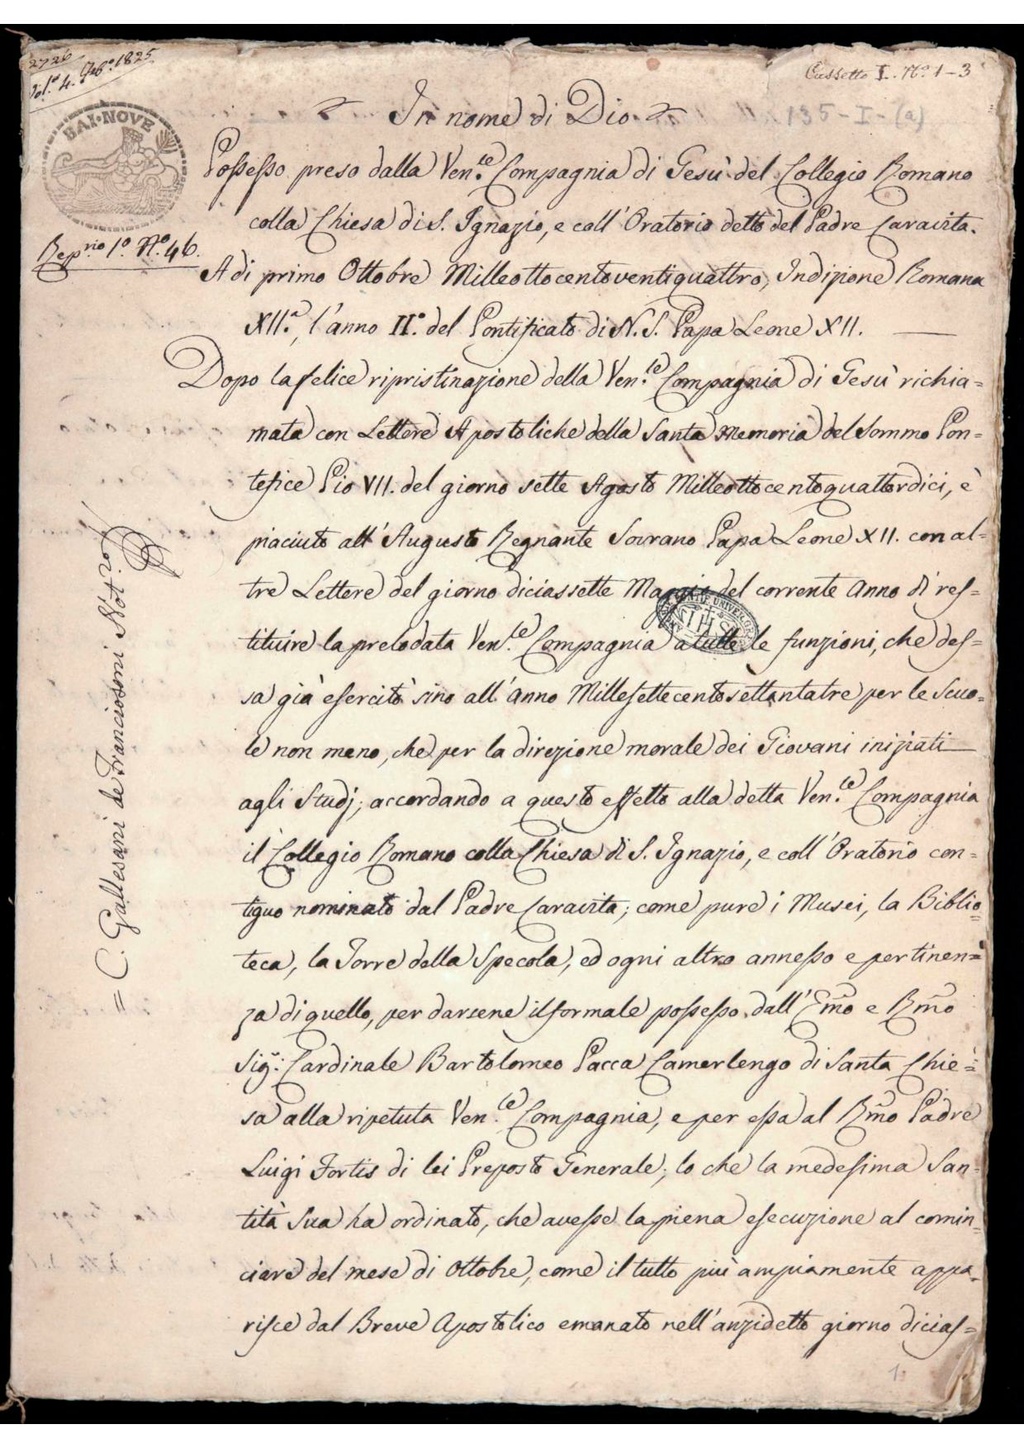 2726
Vol.º 4. Feb.º 1825
Cassetto I. Nº 1-3
135-I-(a)
In nome di Dio
BAI·NOVE
Possesso preso dalla Ven.le Compagnia di Gesù del Collegio Romano
colla Chiesa di S. Ignazio, e coll'Oratorio detto del Padre Caravita.
Rep.rio 1º Nº 46.
A di primo Ottobre Milleottocentoventiquattro, Indizione Romana
XII.a, l'anno II.º del Pontificato di N. S. Papa Leone XII.
Dopo la felice ripristinazione della Ven.le Compagnia di Gesù richia=
mata con Lettere Apostoliche della Santa Memoria del Sommo Pon=
tefice Pio VII. del giorno sette Agosto Milleottocentoquattordici, è
piaciuto all'Augusto Regnante Sovrano Papa Leone XII. con al=
tre Lettere del giorno diciassette Maggio del corrente Anno di res=
IHS
tituire la prelodata Ven.le Compagnia a tutte le funzioni, che des=
sa già esercitò sino all'anno Millesettecentosettantatre per le Scuo=
le non meno, che per la direzione morale dei Giovani iniziati
agli Studj; accordando a questo effetto alla detta Ven.le Compagnia
il Collegio Romano colla Chiesa di S. Ignazio, e coll'Oratorio con=
tiguo nominato dal Padre Caravita; come pure i Musei, la Biblio=
teca, la Torre della Specola, ed ogni altro annesso e pertinen=
za di quello, per darsene il formale possesso dall'Emo e Rmo
Sig.r Cardinale Bartolomeo Pacca Camerlengo di Santa Chie=
sa alla ripetuta Ven.le Compagnia, e per essa al Rmo Padre
Luigi Fortis di lei Preposto Generale; lo che la medesima San=
tità Sua ha ordinato, che avesse la piena esecuzione al comin=
ciare del mese di Ottobre, come il tutto più ampiamente appa=
risce dal Breve Apostolico emanato nell'anzidetto giorno dicias=
= C. Gallesani de Franciosoni Not.ro
1.